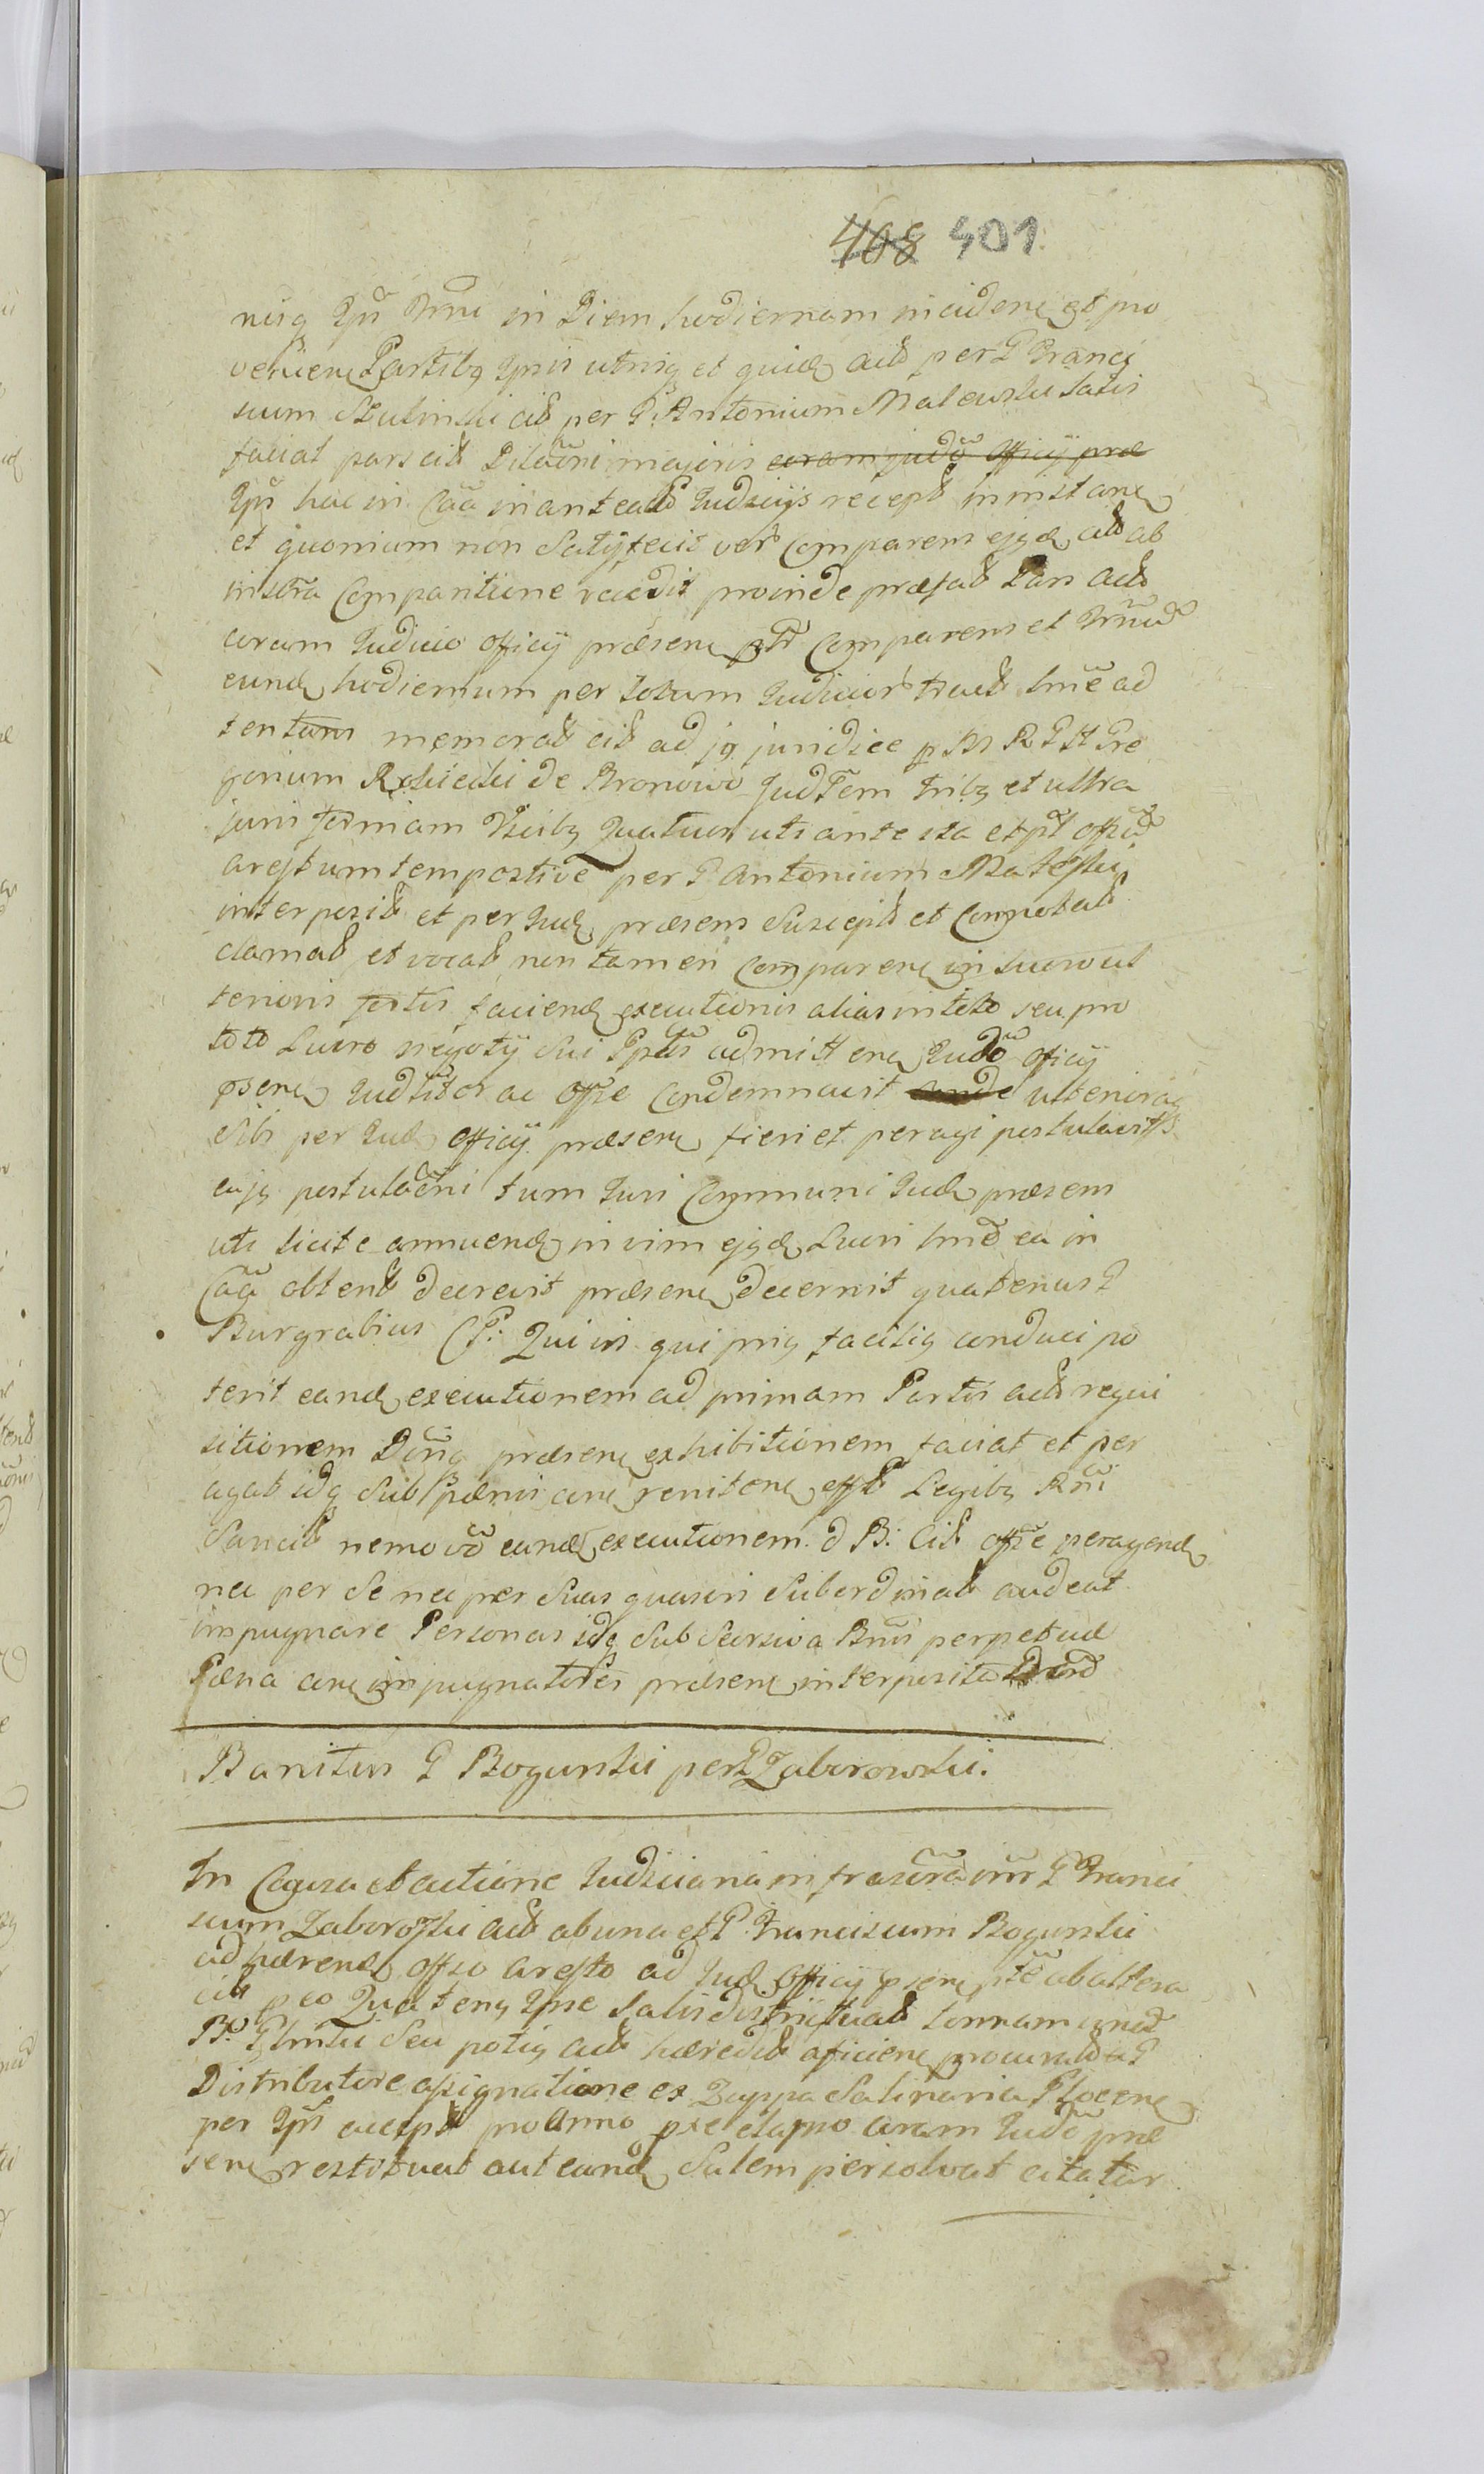 408 401
nisq Ipsi Trni in Diem hodiernam inciden et pro
venien Partibq Ipsis utrisq et quid Actt per G Francis
cum Szulinski citt per G: Antonium Malewski Satis
faciat pars citt Dilaõni majoris coram judõ officij præ
Ipsi hac in Caã in anteactt Judicijs recept in instan
et quoniam non Satisfecit vero Comparens ejqd citt ab
instra Comparitione recedit proinde præfatt Pars Actt
coram Judicio officij præsen ptr Comparens et Trnũ
eund hodiernum per totum Judicior tractt hnie ad
tentans memoratt citt ad jq juridice p M R G H Gre
gorium Rościcki de Bronowo JudTem tribq et ultra
juris formam Vicibq Quatuor uti ante ita et pt offõ
arestum tempestive per G Antonium Maleski
interposit et per Jud præsens Suscept et Connotatt
clamatt et vocatt non tamen Comparen in lucro ul
terioris juris faciend executionis alias in toto seu pro
toto Lucro negotij Sui Iptis admitten Judõ officij
psen Judlitor ac offse Condemnavit ulteriorq
Sibi per Jud officij præsen fieri et peragi postulavit
cujq postulaõni tum Juri Communi Jud præsens
uti licite annuend in vim ejqd Lucri hnie ea in
Caã obtent decrevit præsen decernit quatenus G
Burgrabius CP: Quivis qui priq facilig conduci po
terit eand executionem ad primam Partis actt requi
sitionem Dong præsen exhibitionem faciat et per
agat idq Sub pænis con reniten offlt Legibq Rni
Sancitt nemo võ eand executionem d B: Citt offse peragend
nec per Se nec per Suas quasvis Subordinatt audeat
impugnare Personas idq Sub Secrsiva Bnis perpetuæ
Pæna con impugnatores præsen interposita Decrõ
Banitus G Bogurski per G Zaborowski.
In Causa et actione Judiciaria infrascra inter G Franci
scum Zaboroski Actt ab una et G. Franciscum Bogurski
adhærend offso Aresto ad Jud officij psen ptẽ ab altera
citt peo Quatenq Ipse Salis distrituatt tonnam unã
B: Glinski Seu potiq actt hæredit aficien procurata G
Distributore assignatione ex Zuppa Salinaria Plocen
per Ipsi accept pro Anno præ elapso coram Judõ præ
sen restituat aut eand Salem persolvat citatur